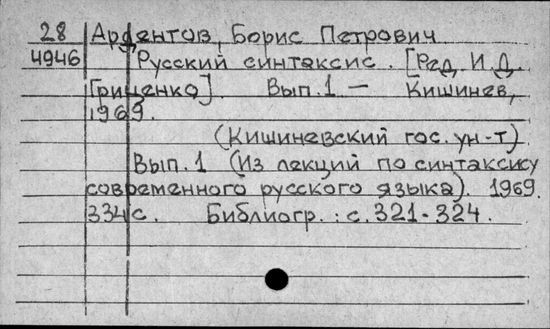 28 Ардентов, Борис Петрович
4946 Русский синтаксис. [Ред. И.Д.
Гриценко]. Вып.1 — Кишинев,
1969.
(Кишиневский гос. ун-т).
Вып.1 (Из лекций по синтаксису
современного русского языка). 1969.
334 с. Библиогр.: с. 321-324.